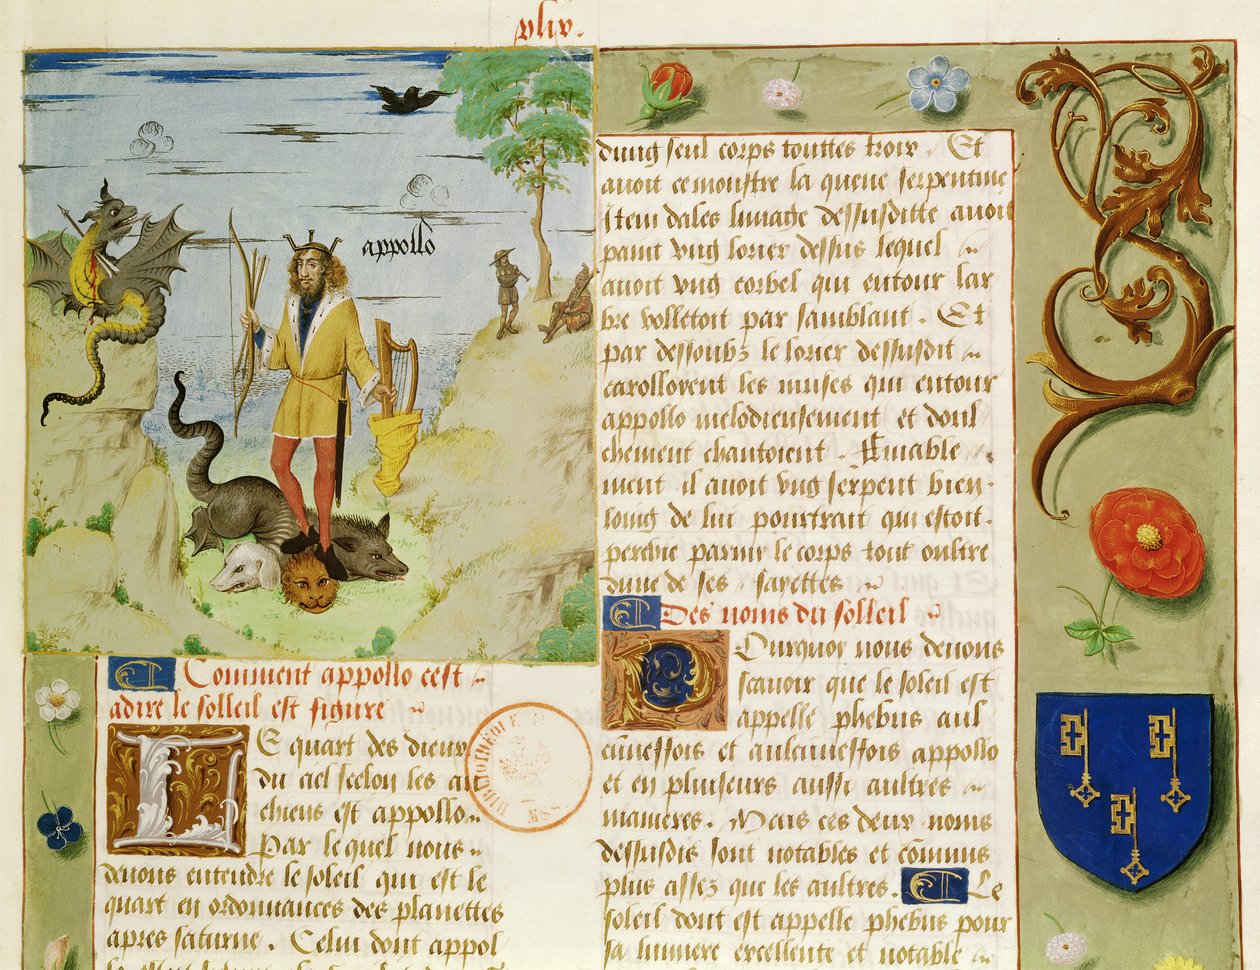 xliv.
appollo
Comment appollo cest
adire le solleil est figure
LE quart des dieux
du ciel selon les an
chiens est appollo.
Par lequel nous
deuons entendre le soleil qui est le
quart en ordonnances des planettes
apres saturne. Celui dont appol
dung seul corps touttes trois. Et
auoit ce monstre la queue serpentine
Item dales limage dessusditte auoit
paint vng lorier dessus lequel
auoit vng corbel qui entour lar
bre volletoit par samblant. Et
par dessoubz le lorier dessusdit
carolloient les muses qui entour
appollo melodieusement et doul
chement chantoient. Emable
ment il auoit vng serpent bien
long de lui pourtrait qui estoit
perchie parmi le corps tout oultre
dune de ses sarettes
Des noms du solleil
POurquoy nous deuons
scauoir que le soleil est
appelle phebus aul
cuneffois et aulcuneffois appollo
et en pluiseurs aussi aultres
manieres. Mais ces deux noms
dessusdis sont notables et cõmuns
plus assez que les aultres. Le
soleil dont est appelle phebus pour
sa lumiere excellente et notable